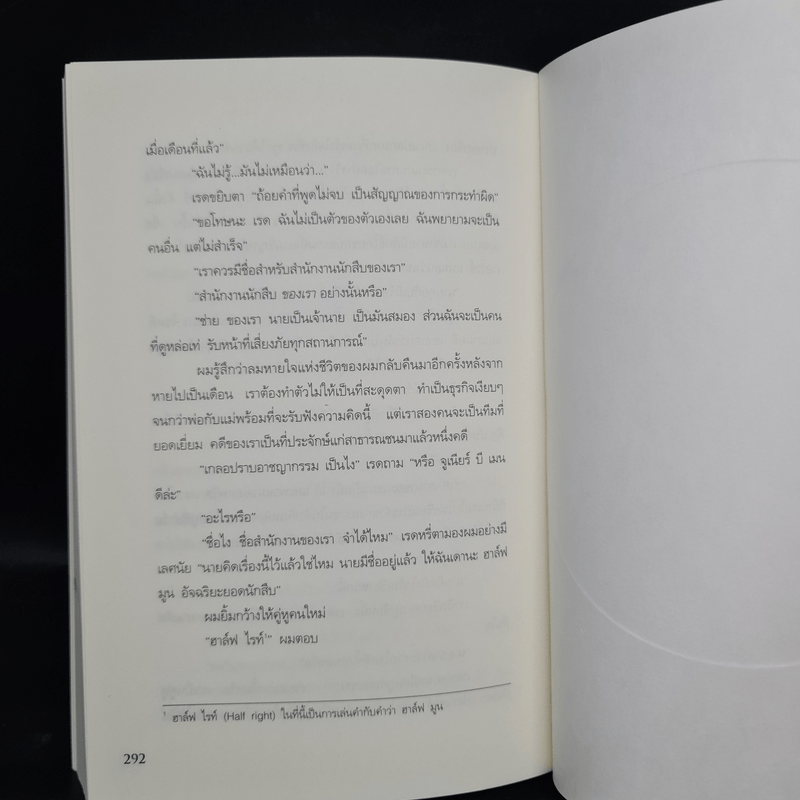 เมื่อเดือนที่แล้ว”
“ฉันไม่รู้...มันไม่เหมือนว่า...”
เรดขยิบตา “ถ้อยคำที่พูดไม่จบ เป็นสัญญาณของการกระทำผิด”
“ขอโทษนะ เรด ฉันไม่เป็นตัวของตัวเองเลย ฉันพยายามจะเป็น
คนอื่น แต่ไม่สำเร็จ”
“เราควรมีชื่อสำหรับสำนักงานนักสืบของเรา”
“สำนักงานนักสืบ ของเรา อย่างนั้นหรือ”
“ช่าย ของเรา นายเป็นเจ้านาย เป็นมันสมอง ส่วนฉันจะเป็นคน
ที่ดูหล่อเท่ รับหน้าที่เสี่ยงภัยทุกสถานการณ์”
ผมรู้สึกว่าลมหายใจแห่งชีวิตของผมกลับคืนมาอีกครั้งหลังจาก
หายไปเป็นเดือน เราต้องทำตัวไม่ให้เป็นที่สะดุดตา ทำเป็นธุรกิจเงียบๆ
จนกว่าพ่อกับแม่พร้อมที่จะรับฟังความคิดนี้ แต่เราสองคนจะเป็นทีมที่
ยอดเยี่ยม คดีของเราเป็นที่ประจักษ์แก่สาธารณชนมาแล้วหนึ่งคดี
“เกลอปราบอาชญากรรม เป็นไง” เรดถาม “หรือ จูเนียร์ บี เมน
ดีล่ะ”
“อะไรหรือ”
“ชื่อไง ชื่อสำนักงานของเรา จำได้ไหม” เรดหรี่ตามองผมอย่างมี
เลศนัย “นายคิดเรื่องนี้ไว้แล้วใช่ไหม นายมีชื่ออยู่แล้ว ให้ฉันเดานะ ฮาล์ฟ
มูน อัจฉริยะยอดนักสืบ”
ผมยิ้มกว้างให้คู่หูคนใหม่
“ฮาล์ฟ ไรท์¹” ผมตอบ
¹ ฮาล์ฟ ไรท์ (Half right) ในที่นี้เป็นการเล่นคำกับคำว่า ฮาล์ฟ มูน
292